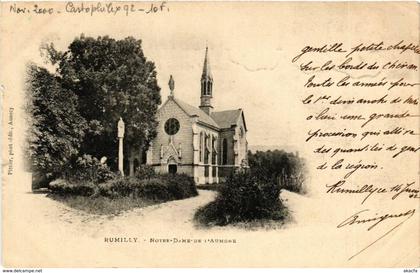 Nov. 2000 - Cartophilex 92 - 10F.
gentille petite chapelle
sur les bords du
Toutes les années pour
le 1er dimanche de
a lieu une grande
procession qui attire
des quantités de gens de
la région.
Rumilly le 14
Pittier, phot-édit., Annecy
RUMILLY. - NOTRE-DAME-DE L'AUMONE